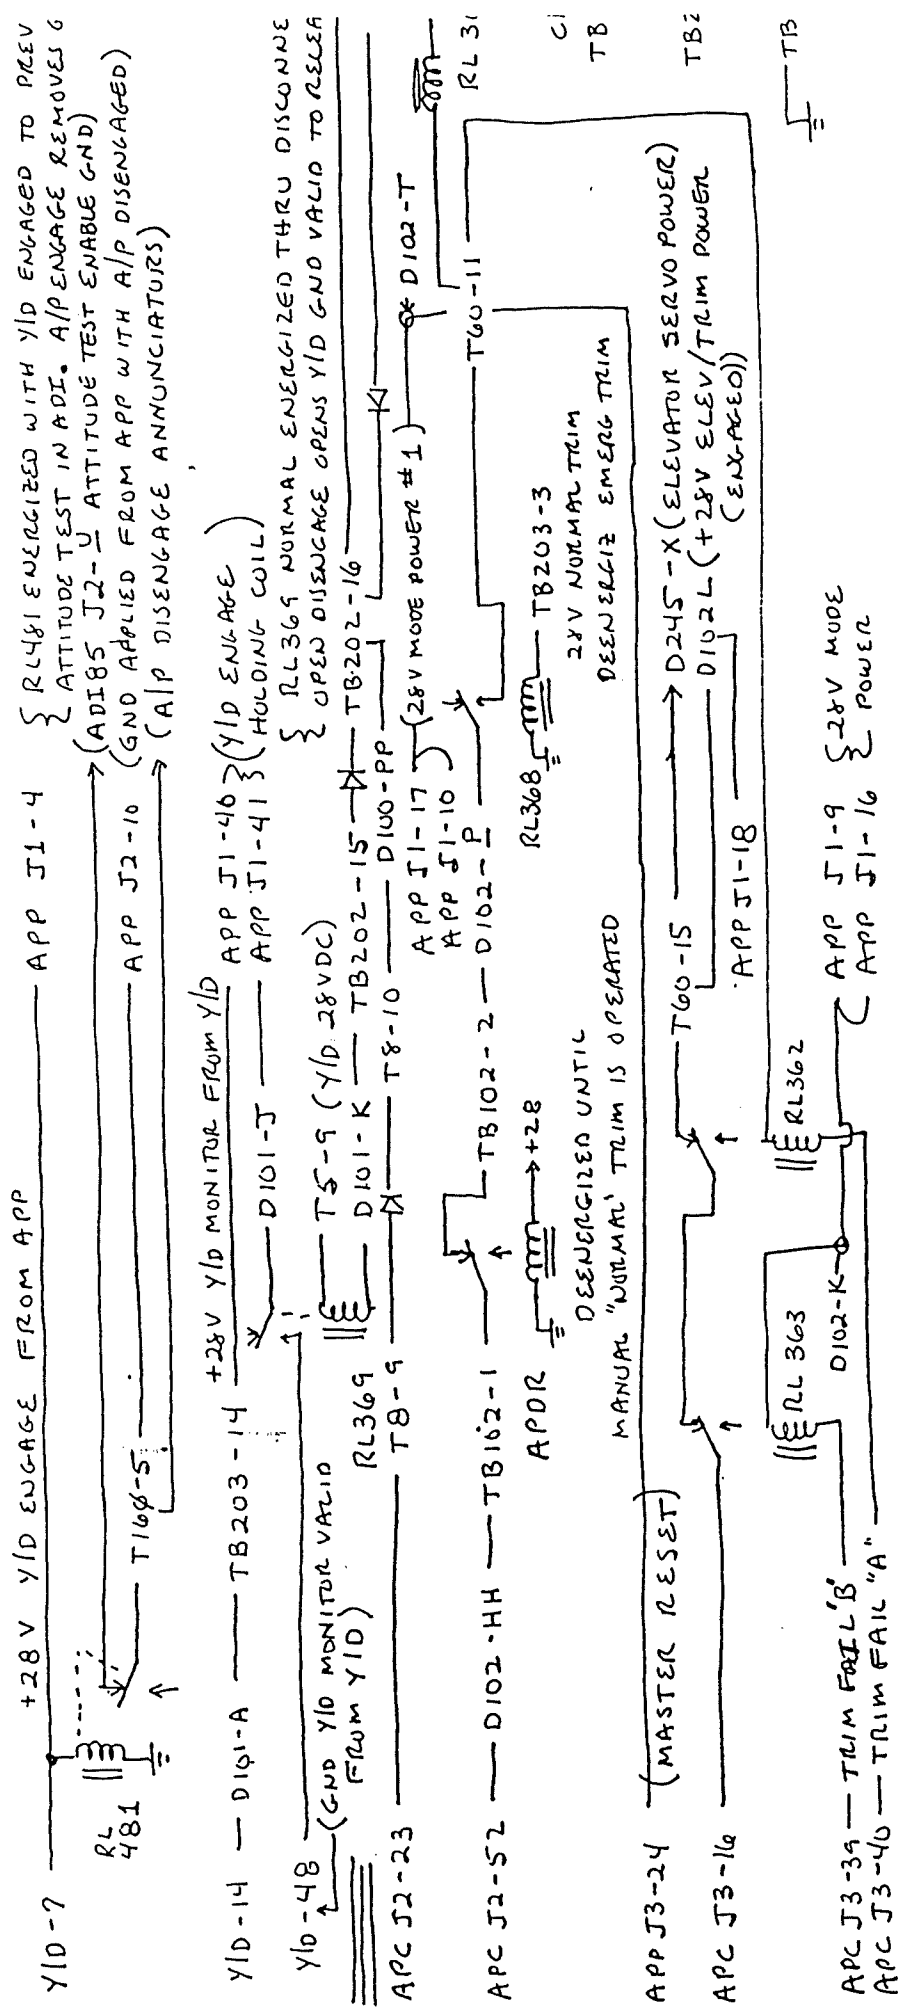 Y/D-7 +28V Y/D ENGAGE FROM APP APP J1-4 { RL481 ENERGIZED WITH Y/D ENGAGED TO PREV
ATTITUDE TEST IN ADI. A/P ENGAGE REMOVES G
RL 481
(ADI85 J2-U ATTITUDE TEST ENABLE GND)
T160-5 APP J2-10 (GND APPLIED FROM APP WITH A/P DISENGAGED)
(A/P DISENGAGE ANNUNCIATURS)
Y/D-14 D101-A TB203-14 +28V Y/D MONITOR FROM Y/D APP J1-40 } (Y/D ENGAGE
D101-J APP J1-41 } (HOLDING COIL)
Y/D-48 (GND Y/D MONITOR VALID
FROM Y/D)
{ RL369 NORMAL ENERGIZED THRU DISCONNE
OPEN DISENGAGE OPENS Y/D GND VALID TO RELEA
RL369 T5-9 (Y/D 28VDC)
D101-K TB202-15 TB202-16
APC J2-23 T8-9 T8-10 D100-PP
APP J1-17 } (28V MODE POWER #1) D102-T
APP J1-10
RL 31
APC J2-52 D102-HH TB102-1 TB102-2 D102-P T60-11
APDR +28
RL368 TB203-3
28V NORMAL TRIM
DEENERGIZ EMERG TRIM
DEENERGIZED UNTIL
MANUAL "NORMAL" TRIM IS OPERATED
CI
TB
APP J3-24 (MASTER RESET)
APC J3-16 T60-15 D245-X (ELEVATOR SERVO POWER)
D102L (+28V ELEV/TRIM POWER
(ENGAGED))
APP J1-18
TB2
RL363 RL362
D102-K
APC J3-39 TRIM FAIL "B" APP J1-9 { 28V MODE
APC J3-40 TRIM FAIL "A" APP J1-16 { POWER
TB